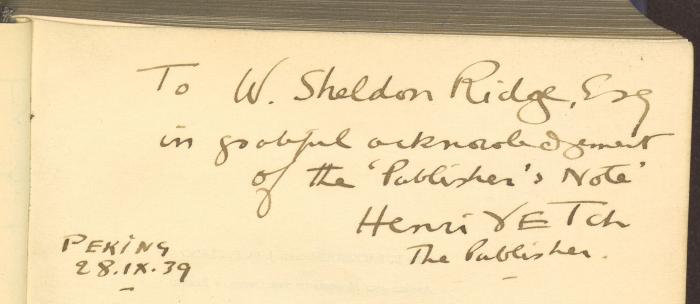 To W. Sheldon Ridge, Esq
in grateful acknowledgement
of the 'Publisher's Note'
Henri VETCH
The Publisher.
PEKING
28.IX.39